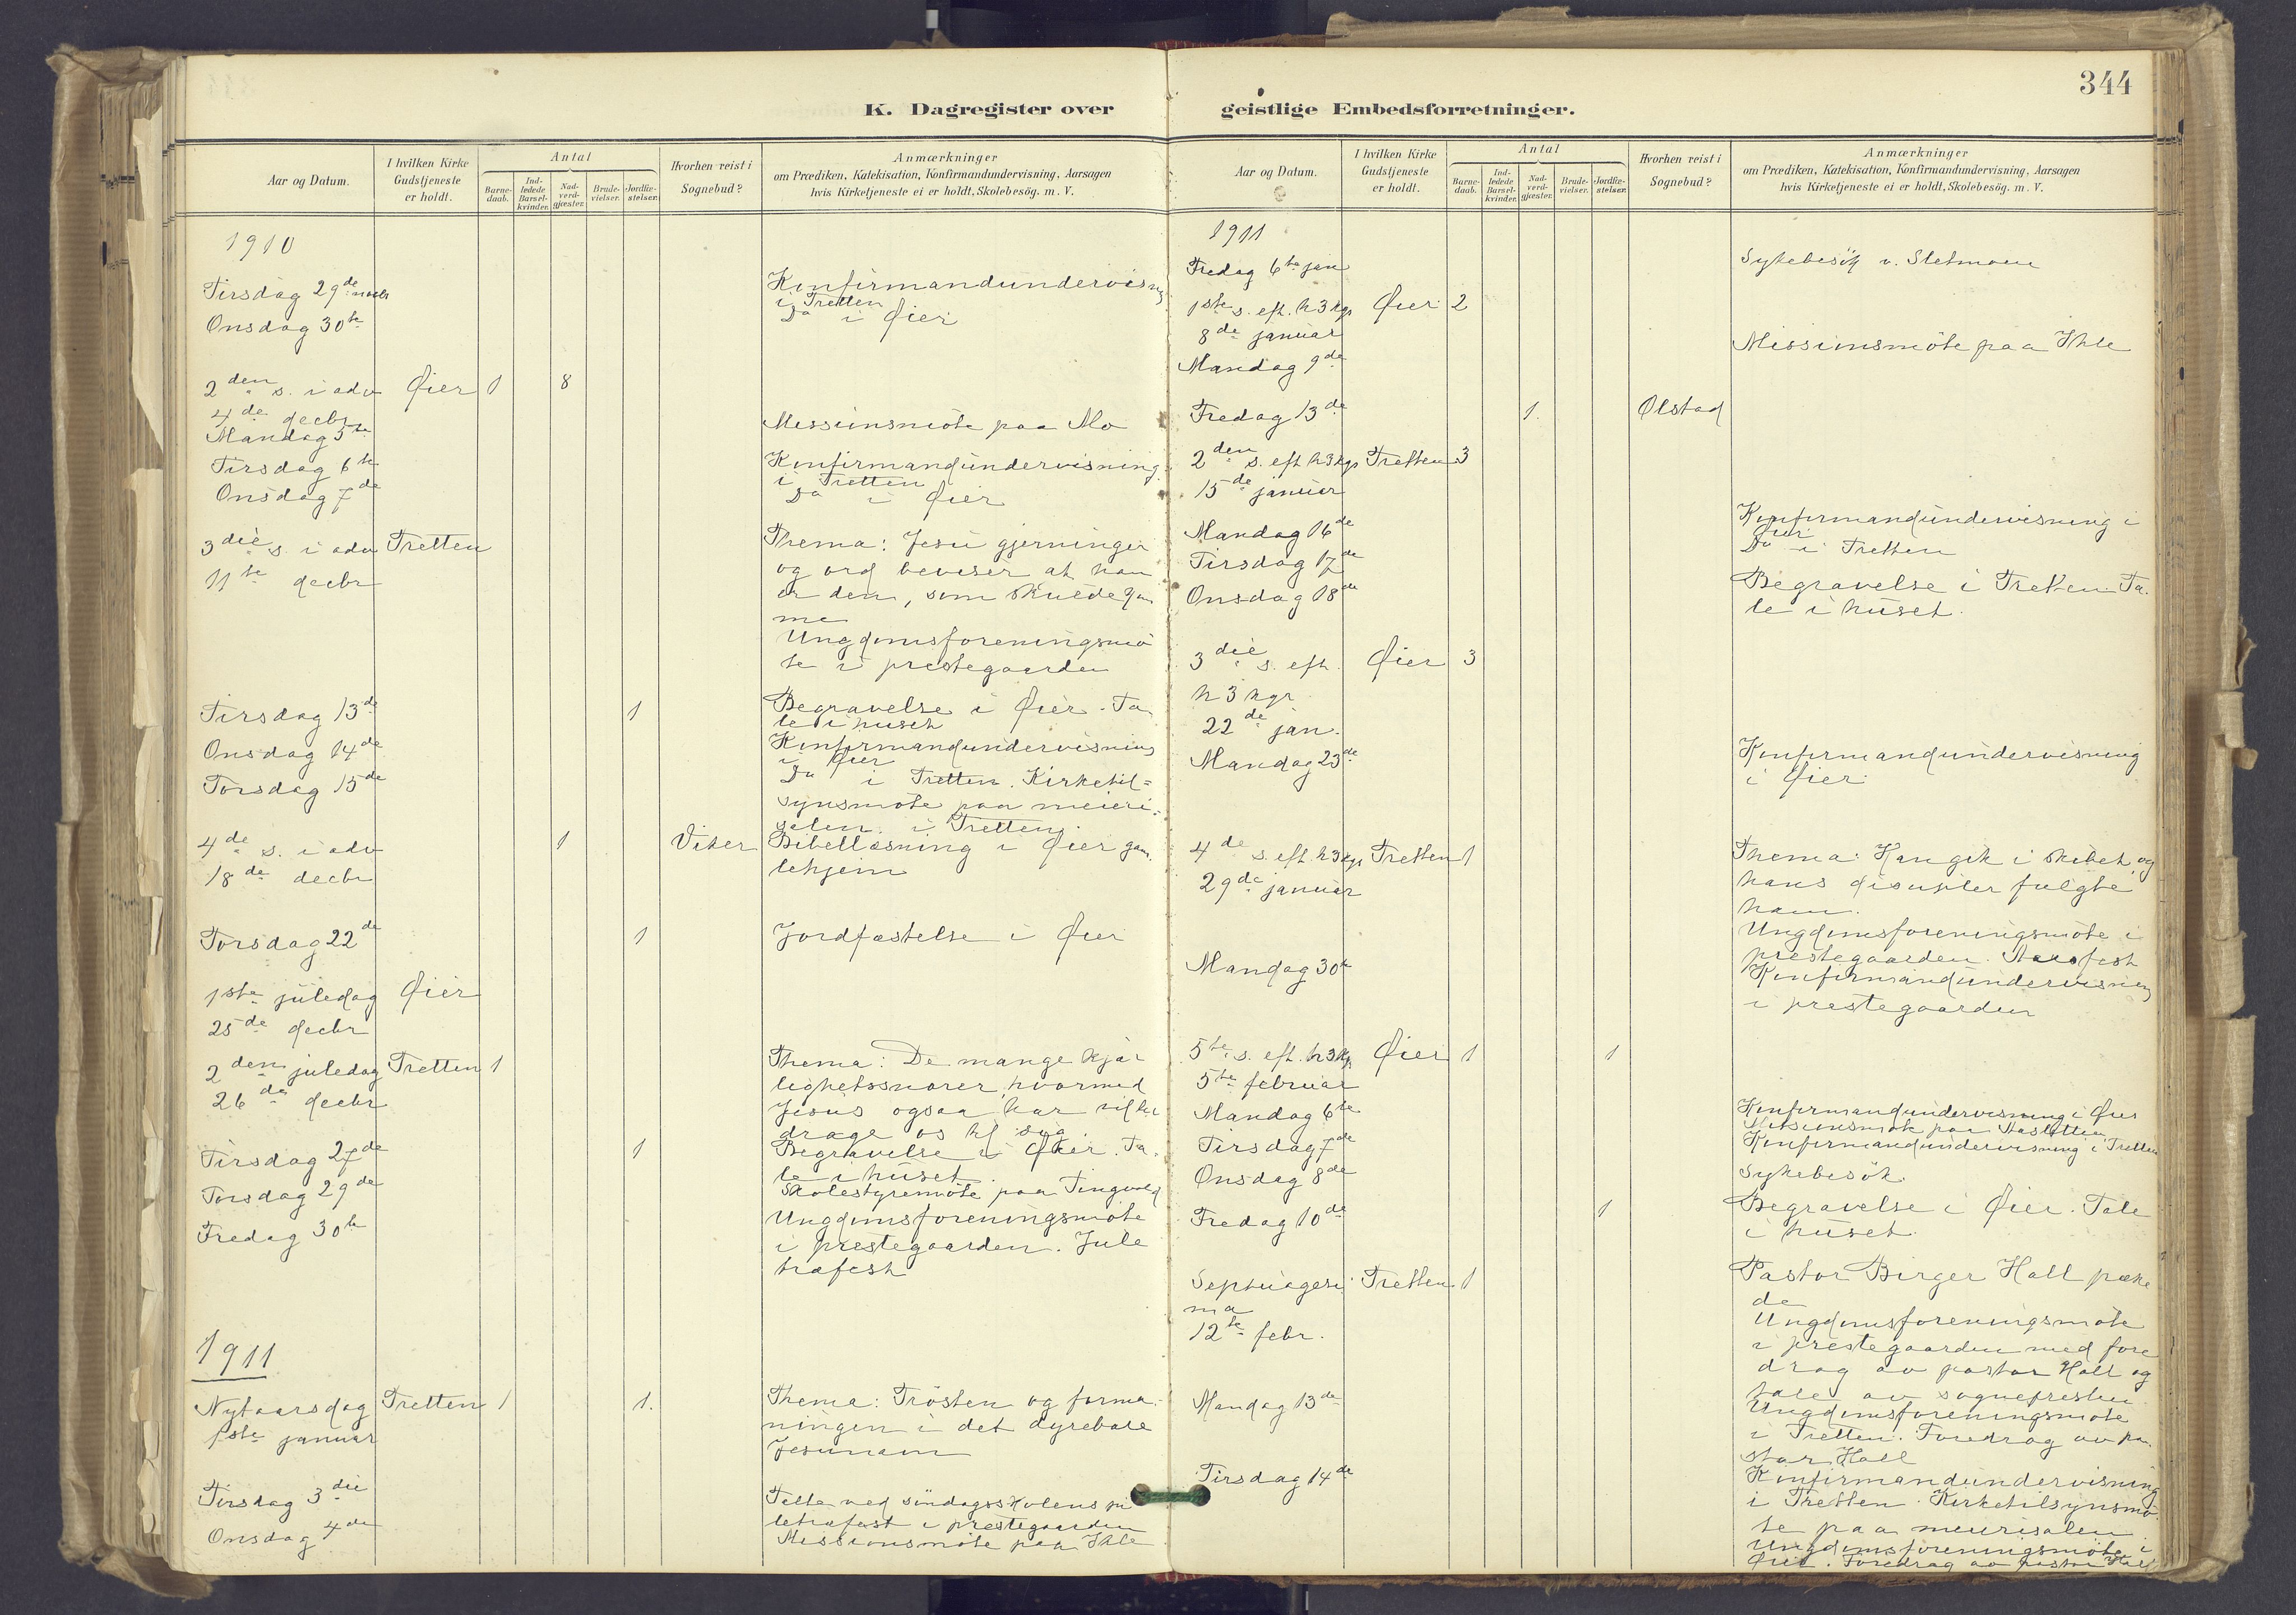 344
K. Dagregister over geistlige Embedsforretninger.
Aar og Datum.
I hvilken Kirke Gudstjeneste er holdt.
Antal
Barne-daab.
Ind-ledede Barsel-kvinder.
Nad-verd-gjæster.
Brude-vielser.
Jordfæ-stelser.
Hvorhen reist i Sognebud?
Anmærkninger
om Prædiken, Katekisation, Konfirmandundervisning, Aarsagen
hvis Kirketjeneste ei er holdt, Skolebesög. m. V.
1910
Tirsdag 29de novbr Konfirmandundervisning
i Tretten
Onsdag 30te Do i Øier
2den s. i adv Øier 1 8
4de decbr
Mandag 5te Missionsmöte paa Mo
Tirsdag 6te Konfirmandundervisning
i Tretten
Onsdag 7de Do i Øier
3die s. i adv Tretten Thema: Jesu gjerninger
11te decbr og ord beviser at han
er den, som skulde kom
me
Ungdomsforeningsmö
te i prestegaarden
Tirsdag 13de 1 Begravelse i Øier. Ta
le i huset
Onsdag 14de Konfirmandundervisning
i Øier
Torsdag 15de Do i Tretten. Kirketil=
synsmöte paa meieri=
salen i Tretten.
4de s. i adv 1 Bibellæsning i Øier gam
18de decbr lehjem
Torsdag 22de 1 Jordfæstelse i Øier
1ste juledag Øier
25de decbr
2den juledag Tretten 1 Thema: De mange kjær
26de decbr lighetssnorer, hvormed
Jesus ogsaa har villet
drage os til sig.
Tirsdag 27de 1 Begravelse i Øier. Ta
le i huset.
Torsdag 29de Skolestyremöte paa Tingvold
Fredag 30te Ungdomsforeningsmöte
i prestegaarden. Jule
træfest
1911
Nytaarsdag Tretten 1 1. Thema: Trösten og forma
1ste januar ningen i det dyrebare
Jesunavn
Tirsdag 3die ved söndagsskolens ju
letræfest i prestegaarden
Onsdag 4de Missionsmöte paa Ihle
Aar og Datum.
I hvilken Kirke Gudstjeneste er holdt.
Antal
Barne-daab.
Ind-ledede Barsel-kvinder.
Nad-verd-gjæster.
Brude-vielser.
Jordfæ-stelser.
Hvorhen reist i Sognebud?
Anmærkninger
om Prædiken, Katekisation, Konfirmandundervisning, Aarsagen
hvis Kirketjeneste ei er holdt, Skolebesög. m. V.
1911
Fredag 6te jan Sykebesök v. Sletmoen
1ste s. eft. h3kgr Øier 2
8de januar
Mandag 9de Missionsmöte paa Ihle
Fredag 13de 1. Ølstad
2den s. eft h3kgr Tretten 3
15de januar
Mandag 16de Konfirmandundervisning i
Øier
Tirsdag 17de Do i Tretten
Onsdag 18de Begravelse i Tretten Ta
le i huset.
3die s. eft. Øier 3
h3kgr
22de jan.
Mandag 23de Konfirmandundervisning
i Øier
4de s. eft. h3kgr Tretten 1 Thema: Han gik i skibet, og
29de januar hans disipler fulgte
ham.
Ungdomsforeningsmöte i
prestegaarden.
Mandag 30te Konfirmandundervisning
i prestegaarden
5te s. eft. h3kgr Øier 1 1
5te februar
Mandag 6te Konfirmandundervisning i Øier
Missionsmöte paa
Tirsdag 7de Konfirmandundervisning i Tretten
Onsdag 8de Sykebesök.
Fredag 10de 1 Begravelse i Øier. Tale
i huset.
Septuagesi Tretten 1 Pastor Birger Hall præke
ma de
12te febr. Ungdomsforeningsmöte
i prestegaarden med fore
drag av pastor Hall og
tale av sognepresten
Mandag 13de Ungdomsforeningsmöte
i Tretten. Foredrag av pa
stor Hall
Tirsdag 14de Konfirmandundervisning
i Tretten. Kirketilsynsmö
te paa meierisalen.
Ungdomsforeningsmöte i
Øier. Foredrag av pastor Hall